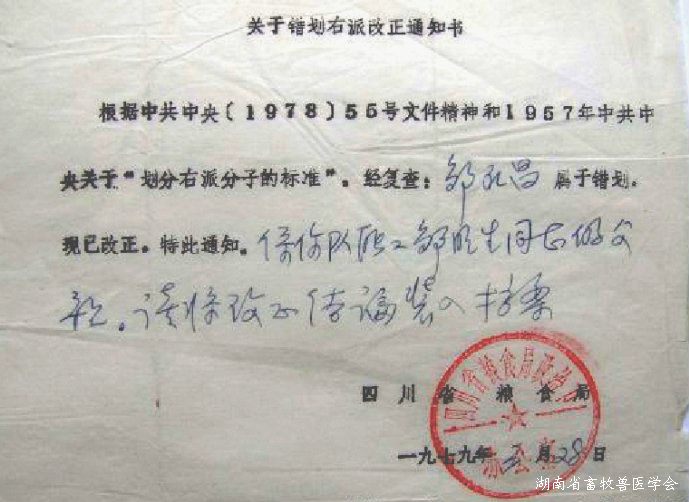 关于错划右派改正通知书
根据中共中央〔1978〕55号文件精神和1957年中共中
央关于“划分右派分子的标准”。经复查：邹孔昌 属于错划.
现已改正。特此通知。 队职工邹 生同志的父
亲。请将改正 装入档案
四川省粮食局
四川省粮食局政治部
办公室
一九七九年 月28日
湖南省畜牧兽医学会